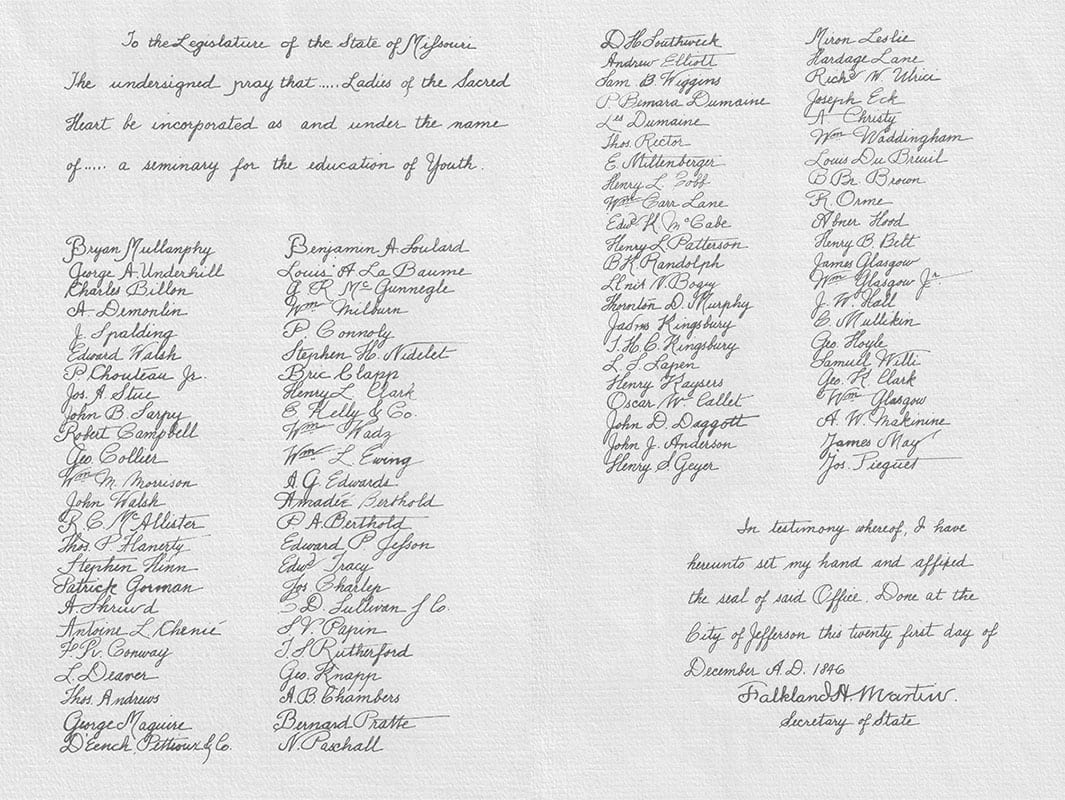 To the Legislature of the State of Missouri
The undersigned pray that ..... Ladies of the Sacred
Heart be incorporated as and under the name
of ..... a seminary for the education of Youth.
Bryan Mullanphy
George A. Underhill
Charles Billon
A. Demonlin
J. Spalding
Edward Walsh
P. Chouteau Jr.
Jos. A. Stue
John B. Sarpy
Robert Campbell
Geo. Collier
Wm M. Morrison
John Walsh
R. C. McAllister
Thos. P. Flanerty
Stephen Hinn
Patrick Gorman
A. Shriwd
Antoine L. Chenié
F. Pv. Conway
L. Deaver
Thos. Andrews
George Maguire
D'Eench, Pettioux & Co.
Benjamin A. Soulard
Louis A La Baume
G R McGunnegle
Wm Milburn
P Connoly
Stephen H. Nidelet
Bric Clapp
Henry L. Clark
E Kelly & Co.
Wm Wadz
Wm L. Ewing
A. G. Edwards
Amadée Berthold
P. A. Berthold
Edward P Jesson
Edwd Tracy
Jos Charlep
D. Sullivan & Co.
S. V. Papin
T. S Rutherford
Geo. Knapp
A. B. Chambers
Bernard Pratte
N. Paschall
D H Southwick
Andrew Elliott
Sam B. Wiggins
P Bemara Dumaine
Les Dumaine
Thos. Rector
E. Miltenberger
Henry L. Cobb
Wm Carr Lane
Edwd K McCabe
Henry L Patterson
B. K. Randolph
Ll nit V. Bogy
Thornton D. Murphy
Jasms Kingsbury
T. H. C. Kingsbury
L. S. Lapen
Henry Kaysers
Oscar W. Collet
John D. Daggott
John J. Anderson
Henry S Geyer
Miron Leslie
Hardage Lane
Richd W Ulrici
Joseph Eck
A Christy
Wm Waddingham
Louis Du Breuil
B. Br. Brown
R. Orme
Abner Hood
Henry B. Belt
James Glasgow
Wm Glasgow Jr.
J. W. Hall
C. Mullekin
Geo. Hoyle
Samuel Witti
Geo. K. Clark
Wm Glasgow
A. W. Makinine
James May
Jos. Pieguet
In testimony whereof, I have
hereunto set my hand and affixed
the seal of said Office. Done at the
City of Jefferson this twenty first day of
December A.D. 1846
Falkland H. Martin.
Secretary of State